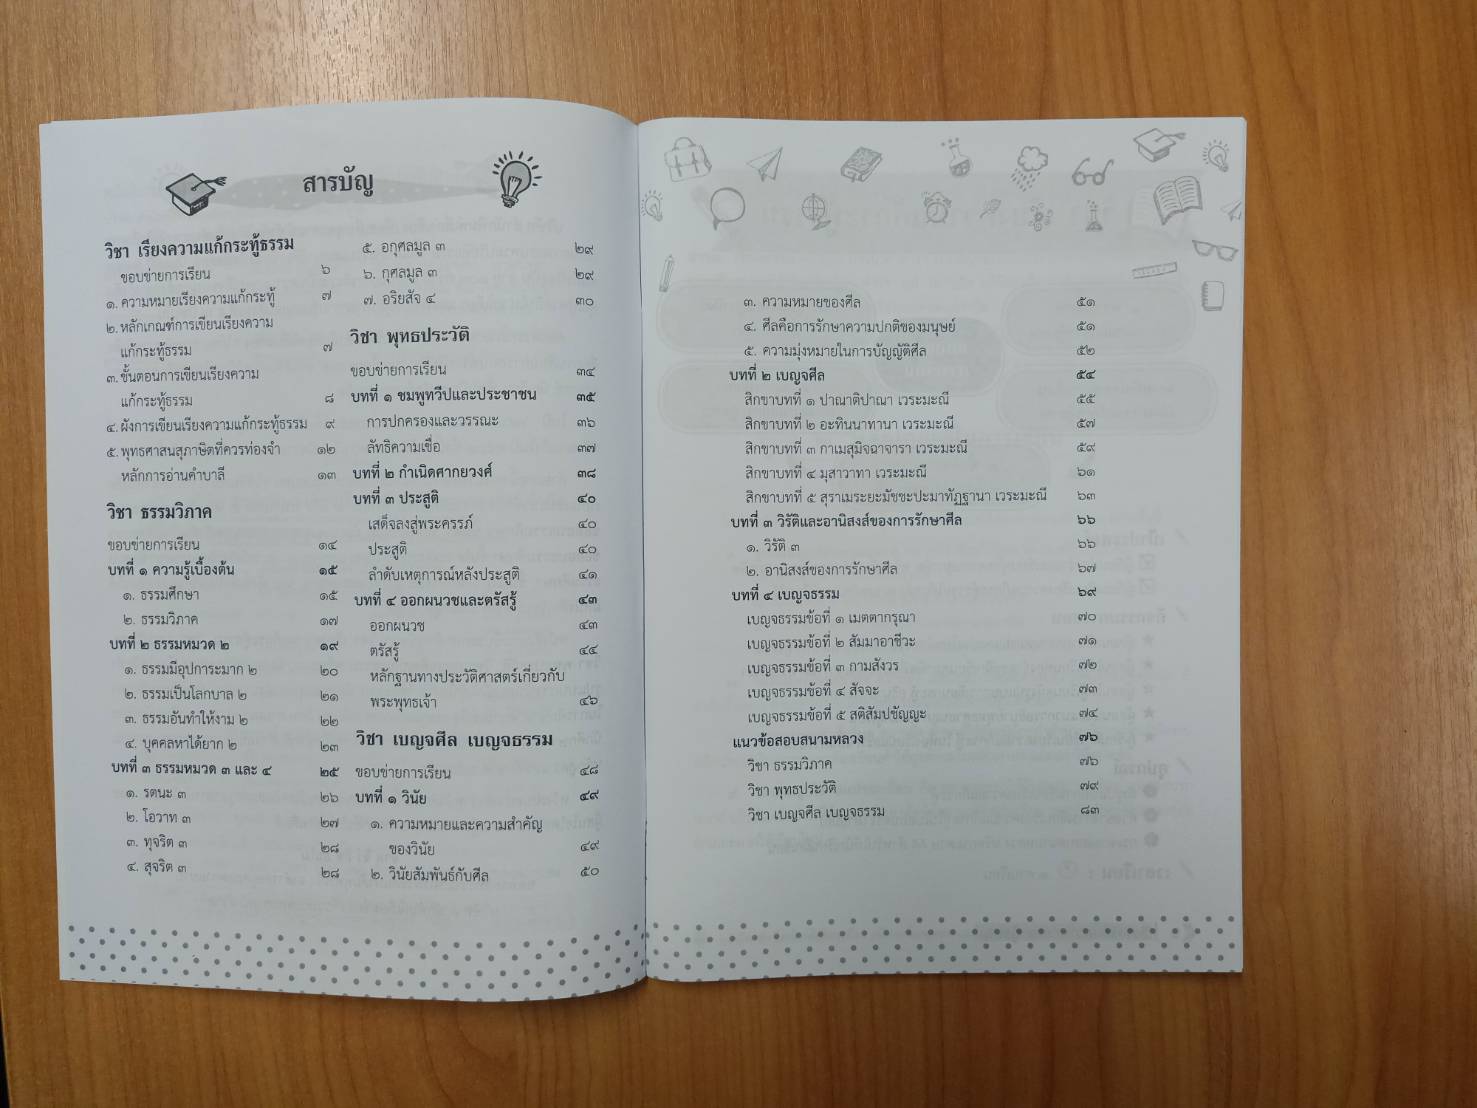 สารบัญ
วิชา เรียงความแก้กระทู้ธรรม
ขอบข่ายการเรียน ๖
๑. ความหมายเรียงความแก้กระทู้ ๗
๒. หลักเกณฑ์การเขียนเรียงความ
แก้กระทู้ธรรม ๗
๓. ขั้นตอนการเขียนเรียงความ
แก้กระทู้ธรรม ๘
๔. ผังการเขียนเรียงความแก้กระทู้ธรรม ๙
๕. พุทธศาสนสุภาษิตที่ควรท่องจำ ๑๒
หลักการอ่านคำบาลี ๑๓
วิชา ธรรมวิภาค
ขอบข่ายการเรียน ๑๔
บทที่ ๑ ความรู้เบื้องต้น ๑๕
๑. ธรรมศึกษา ๑๕
๒. ธรรมวิภาค ๑๗
บทที่ ๒ ธรรมหมวด ๒ ๑๙
๑. ธรรมมีอุปการะมาก ๒ ๒๐
๒. ธรรมเป็นโลกบาล ๒ ๒๑
๓. ธรรมอันทำให้งาม ๒ ๒๒
๔. บุคคลหาได้ยาก ๒ ๒๓
บทที่ ๓ ธรรมหมวด ๓ และ ๔ ๒๕
๑. รตนะ ๓ ๒๖
๒. โอวาท ๓ ๒๗
๓. ทุจริต ๓ ๒๘
๔. สุจริต ๓ ๒๘
๕. อกุศลมูล ๓ ๒๙
๖. กุศลมูล ๓ ๒๙
๗. อริยสัจ ๔ ๓๐
วิชา พุทธประวัติ
ขอบข่ายการเรียน ๓๔
บทที่ ๑ ชมพูทวีปและประชาชน ๓๕
การปกครองและวรรณะ ๓๖
ลัทธิความเชื่อ ๓๗
บทที่ ๒ กำเนิดศากยวงศ์ ๓๘
บทที่ ๓ ประสูติ ๔๐
เสด็จลงสู่พระครรภ์ ๔๐
ประสูติ ๔๐
ลำดับเหตุการณ์หลังประสูติ ๔๑
บทที่ ๔ ออกผนวชและตรัสรู้ ๔๓
ออกผนวช ๔๓
ตรัสรู้ ๔๔
หลักฐานทางประวัติศาสตร์เกี่ยวกับ
พระพุทธเจ้า ๔๖
วิชา เบญจศีล เบญจธรรม
ขอบข่ายการเรียน ๔๘
บทที่ ๑ วินัย ๔๙
๑. ความหมายและความสำคัญ
ของวินัย ๔๙
๒. วินัยสัมพันธ์กับศีล ๕๐
๓. ความหมายของศีล ๕๑
๔. ศีลคือการรักษาความปกติของมนุษย์ ๕๑
๕. ความมุ่งหมายในการบัญญัติศีล ๕๒
บทที่ ๒ เบญจศีล ๕๔
สิกขาบทที่ ๑ ปาณาติปาณา เวระมะณี ๕๕
สิกขาบทที่ ๒ อะทินนาทานา เวระมะณี ๕๗
สิกขาบทที่ ๓ กาเมสุมิจฉาจารา เวระมะณี ๕๙
สิกขาบทที่ ๔ มุสาวาทา เวระมะณี ๖๑
สิกขาบทที่ ๕ สุราเมระยะมัชชะปะมาทัฏฐานา เวระมะณี ๖๓
บทที่ ๓ วิรัติและอานิสงส์ของการรักษาศีล ๖๖
๑. วิรัติ ๓ ๖๖
๒. อานิสงส์ของการรักษาศีล ๖๗
บทที่ ๔ เบญจธรรม ๖๙
เบญจธรรมข้อที่ ๑ เมตตากรุณา ๗๐
เบญจธรรมข้อที่ ๒ สัมมาอาชีวะ ๗๑
เบญจธรรมข้อที่ ๓ กามสังวร ๗๒
เบญจธรรมข้อที่ ๔ สัจจะ ๗๓
เบญจธรรมข้อที่ ๕ สติสัมปชัญญะ ๗๔
แนวข้อสอบสนามหลวง ๗๖
วิชา ธรรมวิภาค ๗๖
วิชา พุทธประวัติ ๗๙
วิชา เบญจศีล เบญจธรรม ๘๓